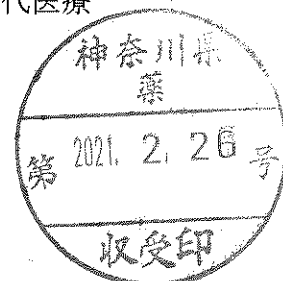 代医療
神奈川県
薬
第 2021. 2. 26 号
収受印